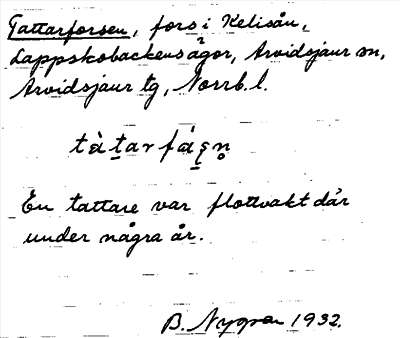 Tattarforsen, fors i Kelisån,
Lappskobackens ägor, Arvidsjaur sn,
Arvidsjaur tg, Norrb. l.
En tattare var flottvakt där
under några år.
B. Nygren 1932.